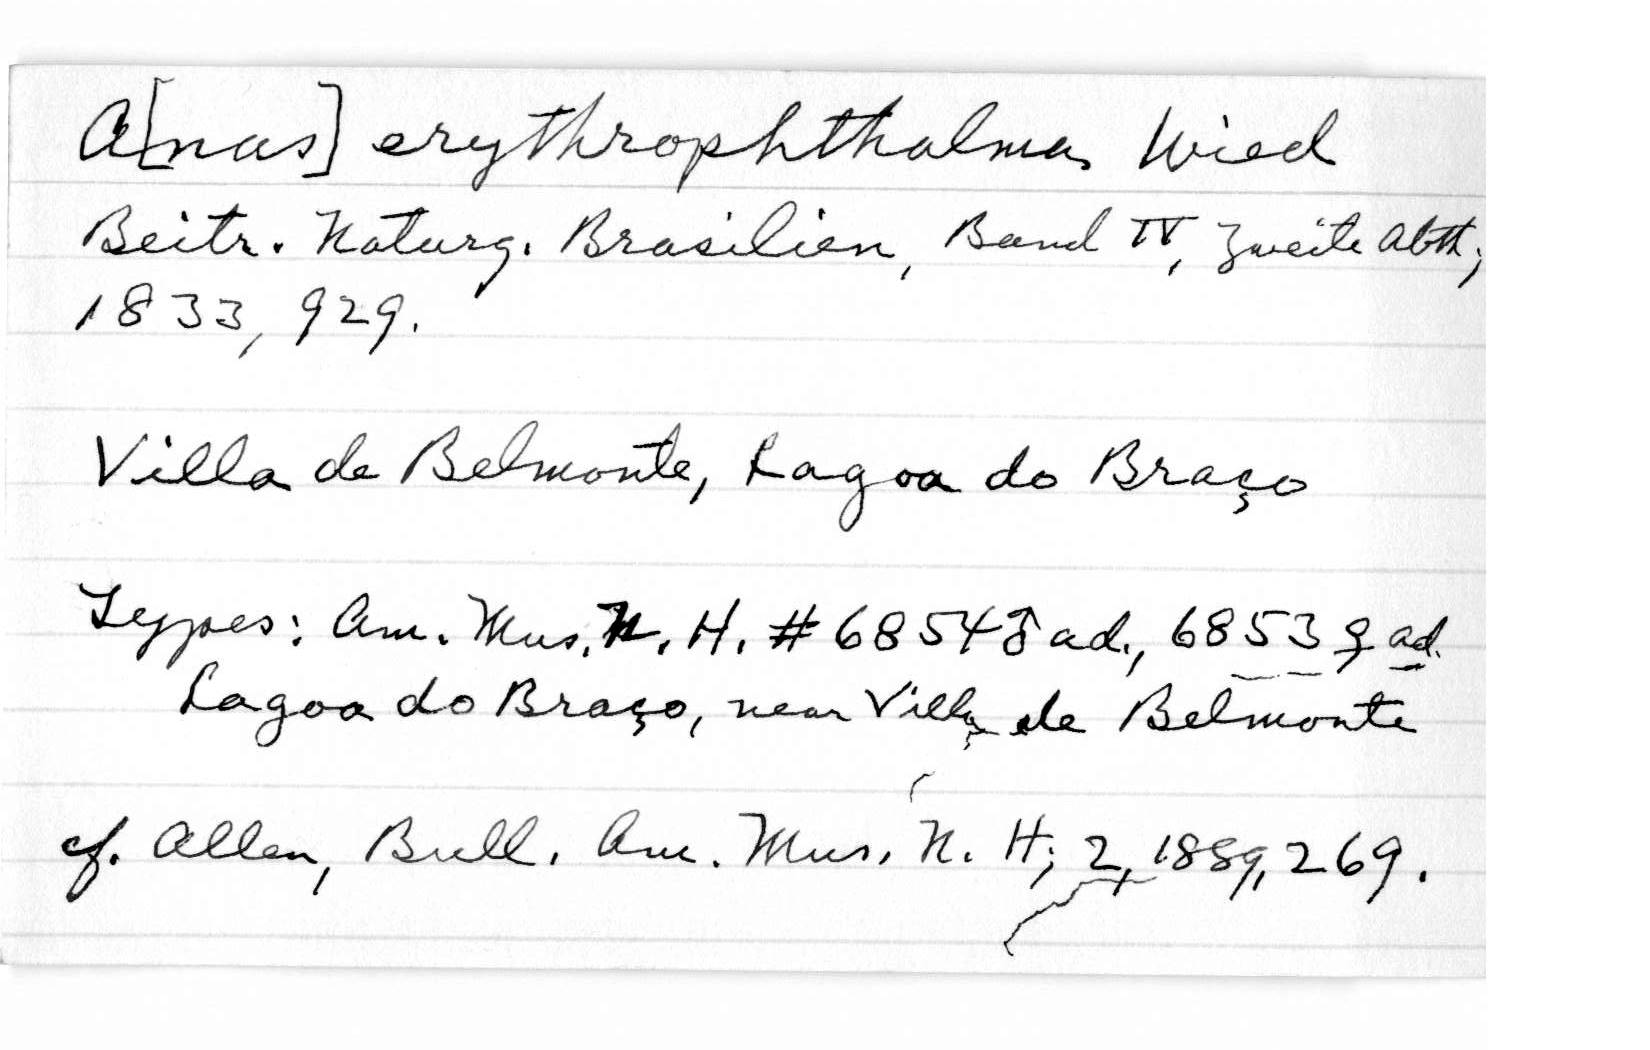 A[nas] erythrophthalma Wied
Beitr. Naturg. Brasilien, Band IV, Zweite Abth;
1833, 929.
Villa de Belmonte, Lagoa do Braço
Types: Am. Mus. N. H. # 6854 ♂ ad., 6853 ♀ ad.
Lagoa do Braço, near Villa de Belmonte
cf. Allen, Bull. Am. Mus. N. H; 2, 1889, 269.